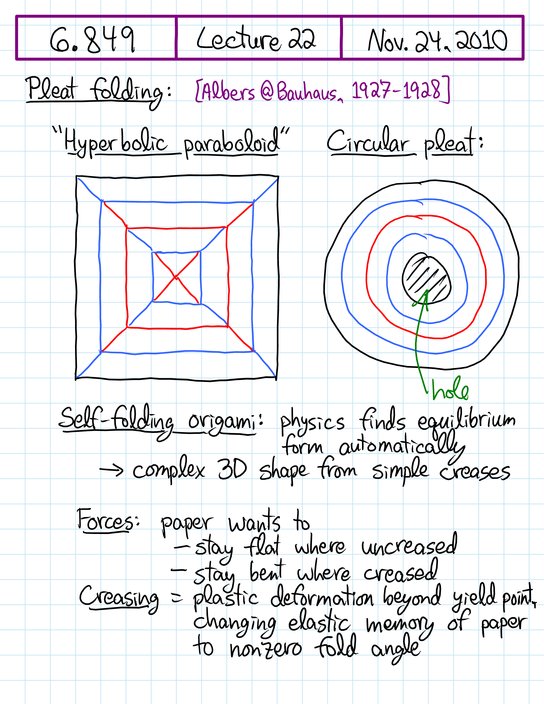 6.849 Lecture 22 Nov. 24, 2010
Pleat folding: [Albers @ Bauhaus, 1927-1928]
"Hyperbolic paraboloid" Circular pleat:
hole
Self-folding origami: physics finds equilibrium
form automatically
→ complex 3D shape from simple creases
Forces: paper wants to
- stay flat where uncreased
- stay bent where creased
Creasing = plastic deformation beyond yield point,
changing elastic memory of paper
to nonzero fold angle